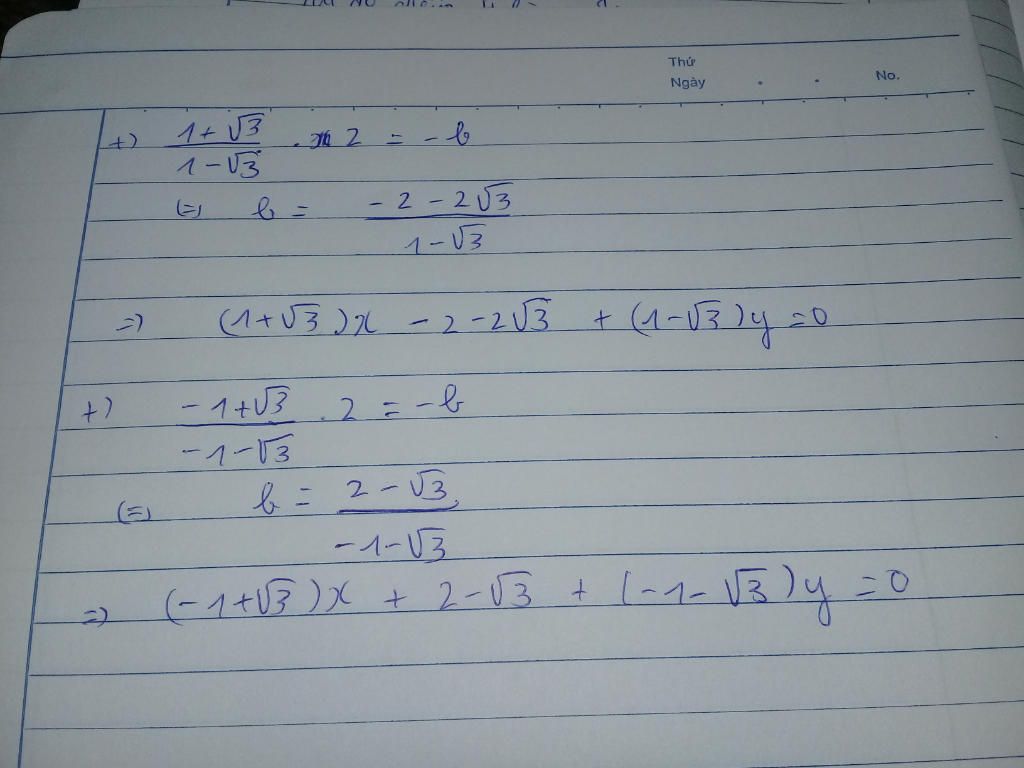 Thứ
Ngày . . No.
+) \frac{1+√3}{1-√3} . 2 = -b
(=) b = \frac{-2-2√3}{1-√3}
=) (1+√3)x - 2 - 2√3 + (1-√3)y = 0
+) \frac{-1+√3}{-1-√3} . 2 = -b
(=) b = \frac{2-√3}{-1-√3}
=) (-1+√3)x + 2 - √3 + (-1-√3)y = 0